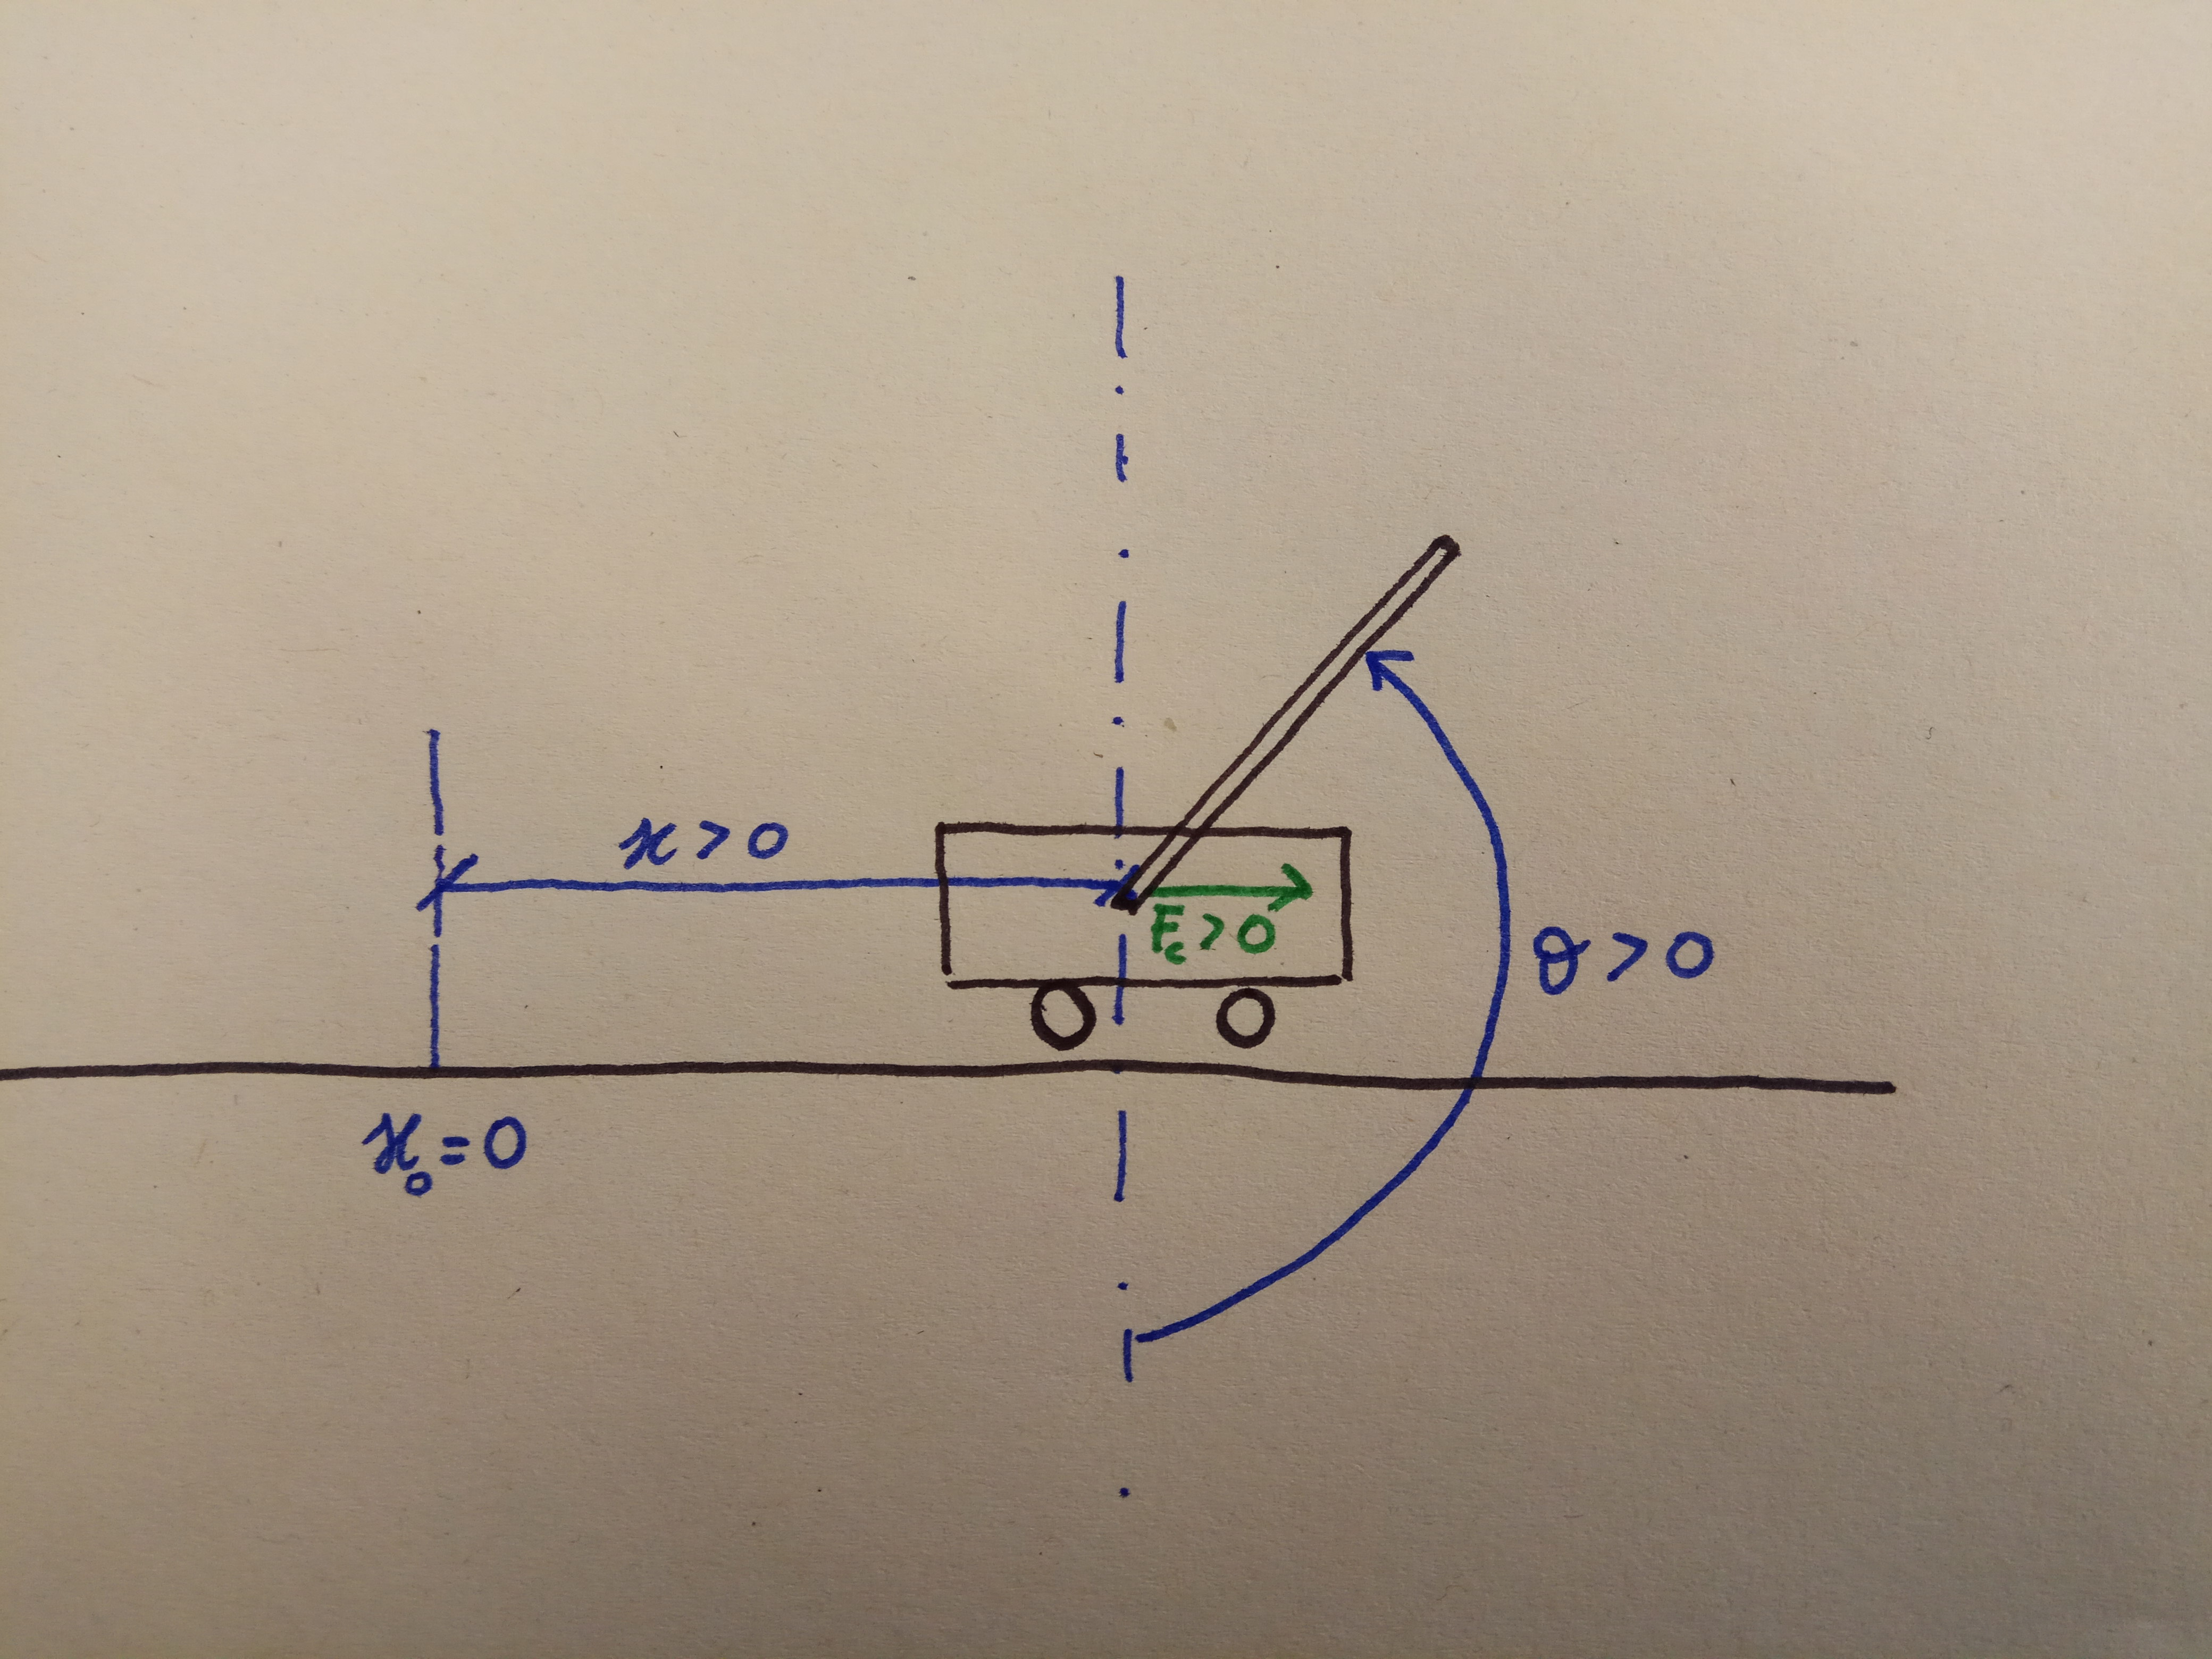 x > 0
F_c > 0
θ > 0
x_0 = 0